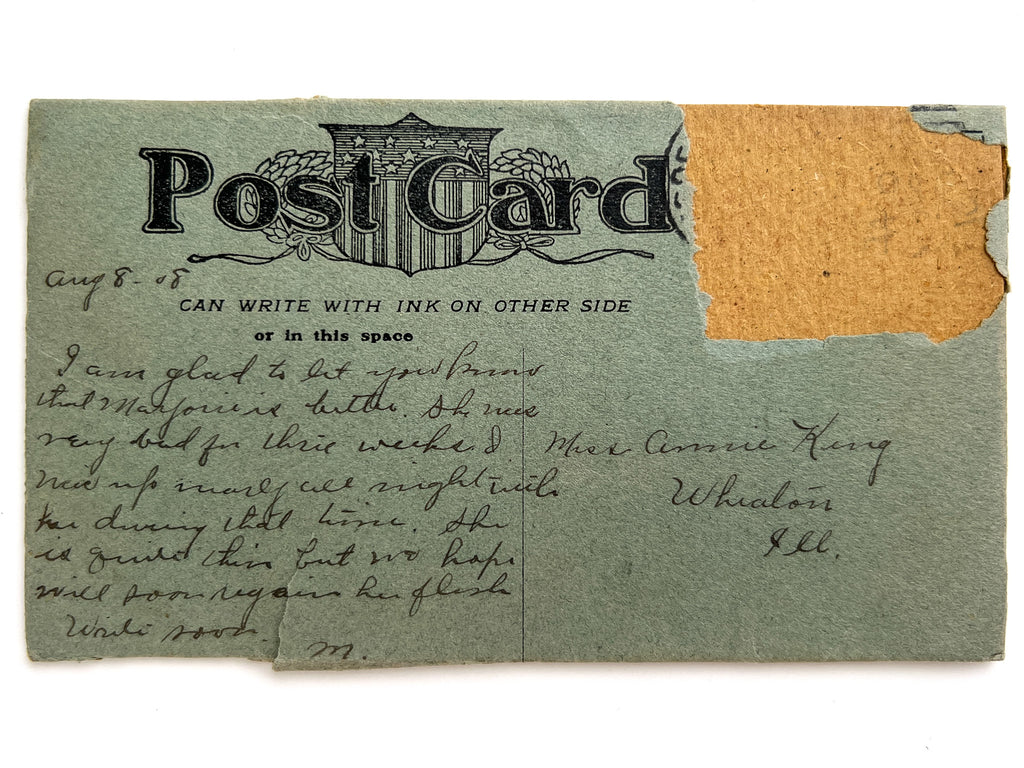 Post Card
Aug 8-08
CAN WRITE WITH INK ON OTHER SIDE
or in this space
I am glad to let you know
that Marjorie is better. She was
very bad for three weeks. I
was up nearly all night with
her during that time. She
is quite thin but we hope
will soon regain her flesh
Write soon.
M.
Miss Annie King
Wheaton
Ill.